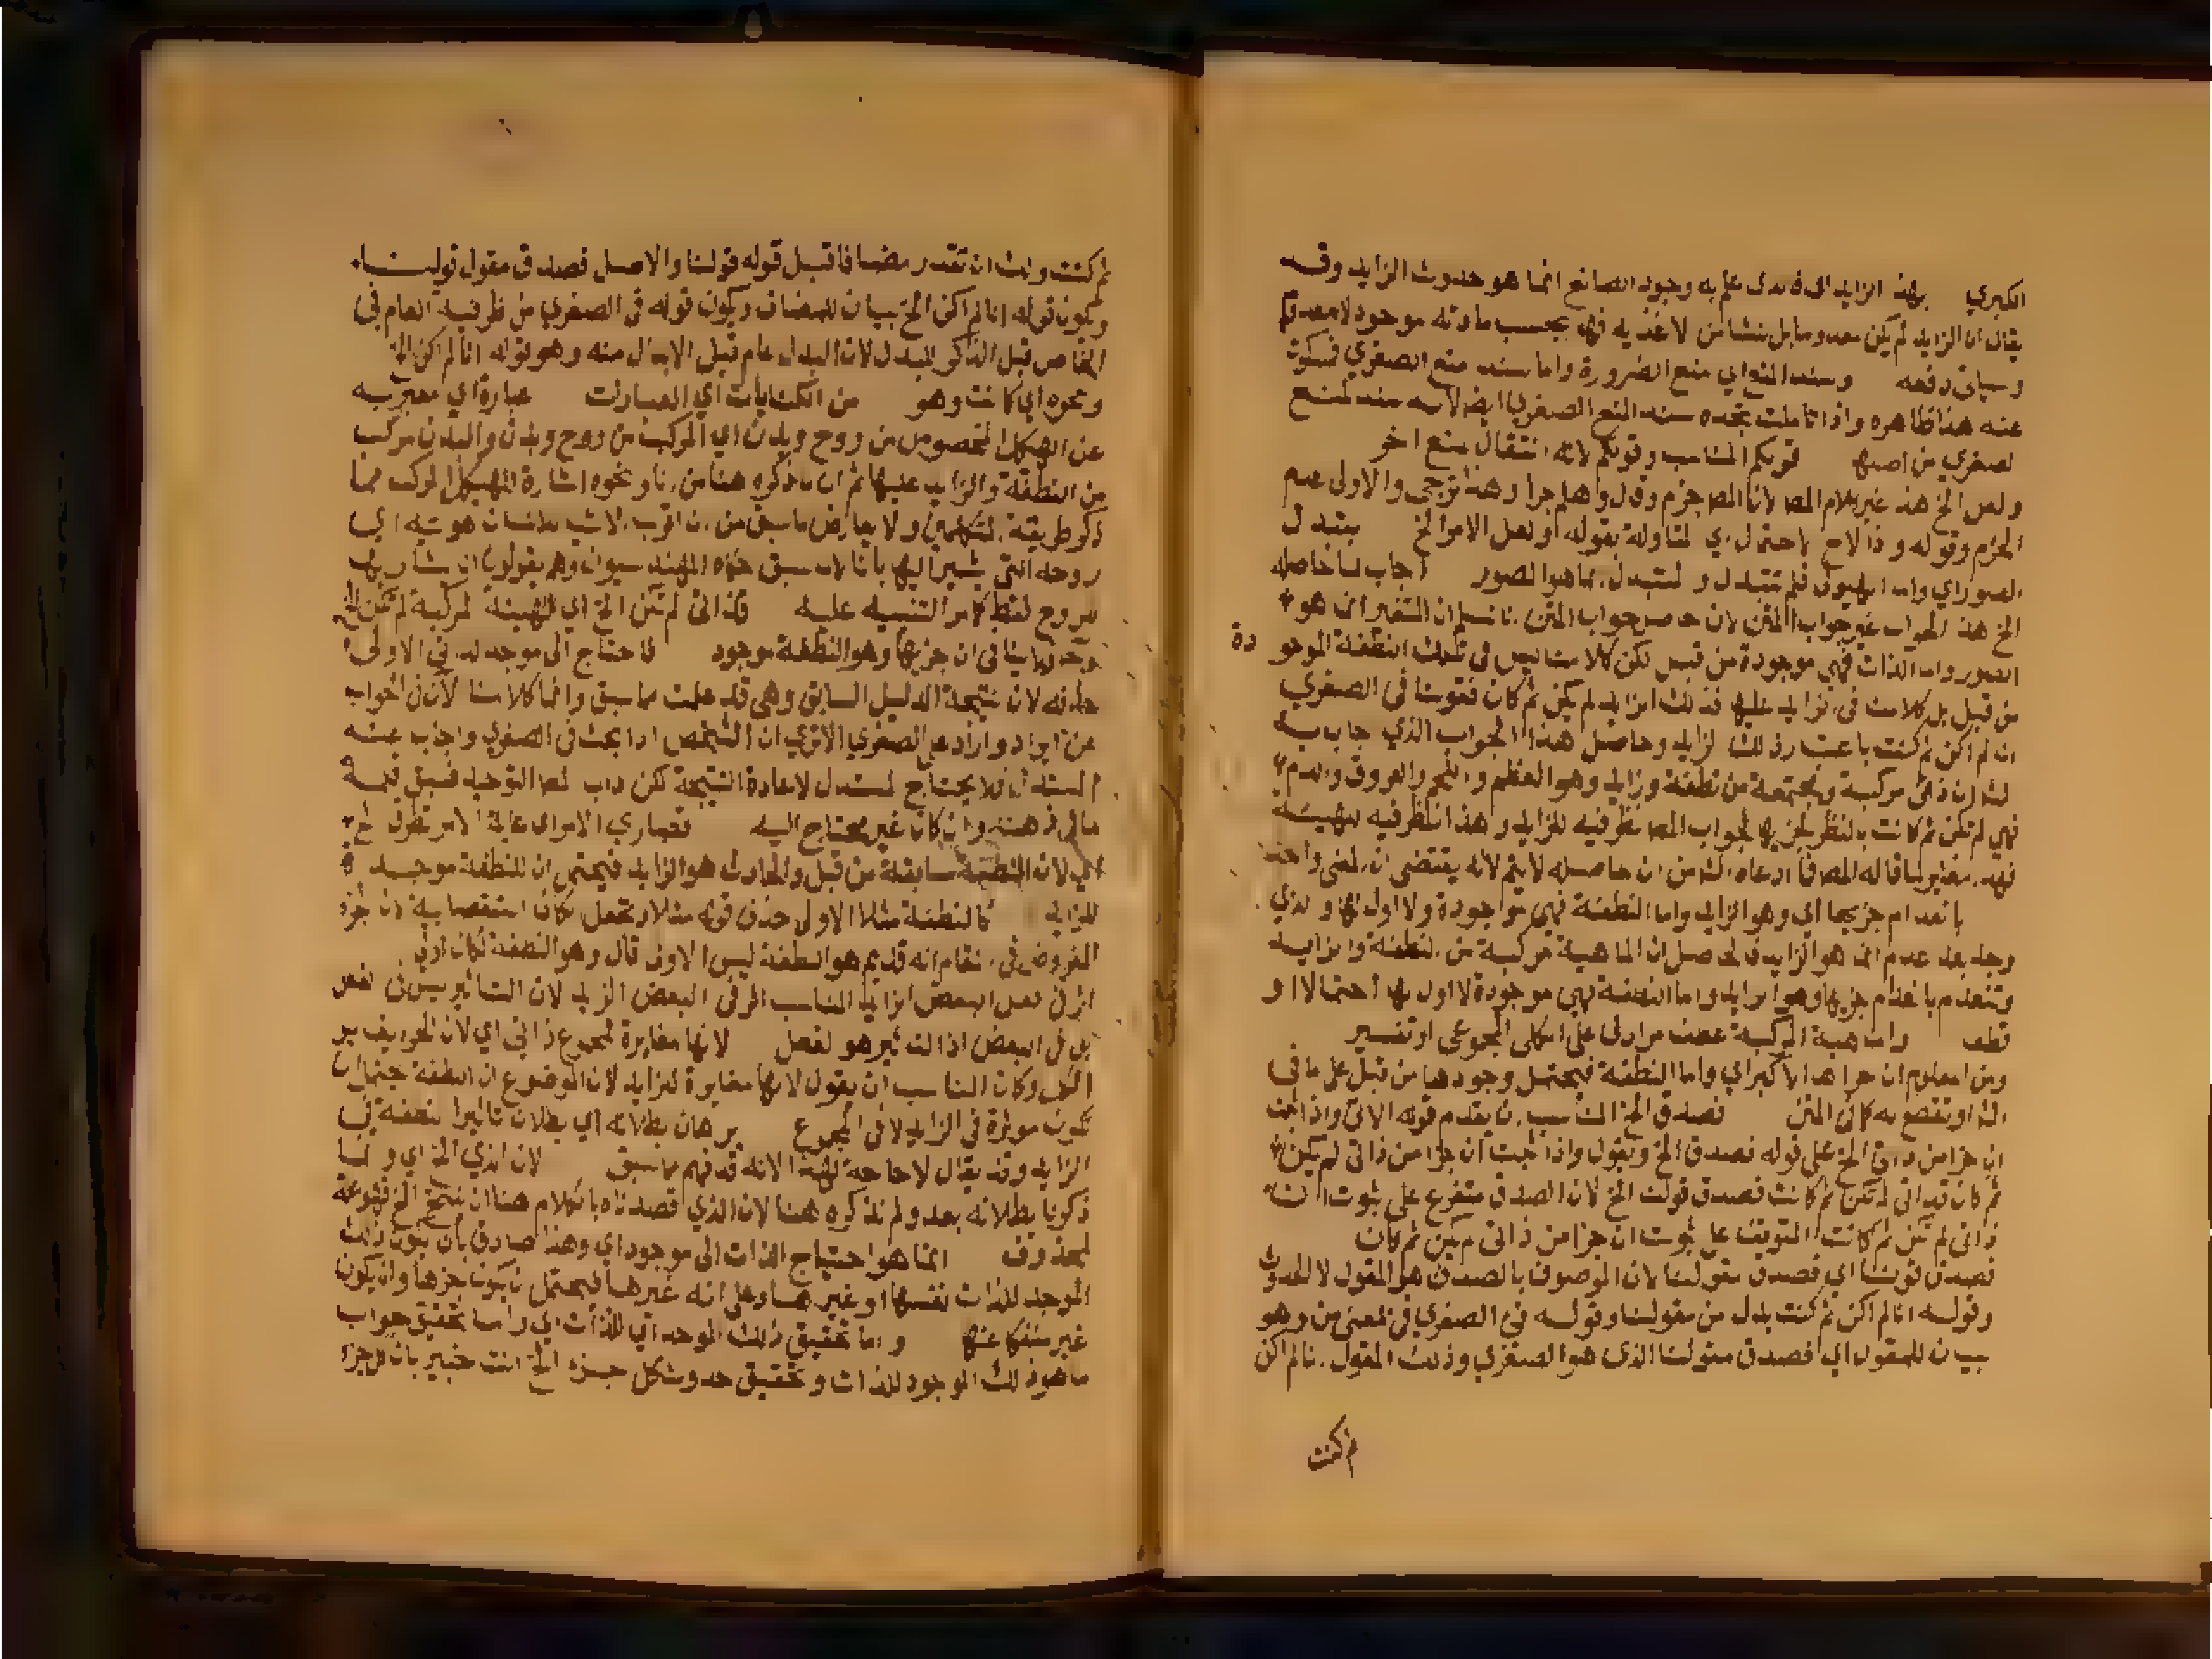 الكبري بهذا الزايد اى فالذي علم به وجود الصانع انما هو حدوث الزايد وقد
يقال ان الزايد لم يكن معدوما بل نشا من الاغذيه فهو بحسب مادته موجود لا معدوم
وسياتى دفعه وسند المنع اي منع الضرورة واما سند منع الصغري فسكوت
عنه هذا ظاهره واذا تاملت تجده سند المنع الصغري ايضا لانه سند لمنع
لصغري من اصلها قولكم المناسب وقولكم لانه انتقال لمنع اخر
ولعل الخ هذا غير كلام المص لان المص جزم وقال وهلم جرا وهذا ترجى والاولى عدم
الجزم وقوله و ذا لاح لاحتمال اي لمتاولة بقوله او لعل الامر الخ يتبدل
الصور اي واما الهيولى فلم تتبدل و لمتبدل انما هو الصور اجاب لنا حاصله
الخ هذا الجواب غير جواب المتن لان حاصل جواب المتن انا نسلم ان التغير انما هو
الصور واما الذات فهي موجودة من قبل لكن كلامنا ليس في تلك النطفة الموجو دة
من قبل بل كلامنا فى الزايد عليها فذلك الزايد لم يكن ثم كان فقولنا فى الصغري
انا لم اكن ثم كنت باعتبار ذلك الزايد وحاصل هذا الجواب الذي اجاب به
لنا ان ذاتى مركبة ومجتمعة من نطفة وزايد وهو العظم واللحم والعروق والدم
فهي لم تكن ثم كانت بالنظر لجزيها لجواب المص نظر فيه للزايد وهذا نظر فيه للهيئة
فهو مغاير لما قاله المص فما ادعاه لنا من ان حاصله لا يتم لانه يقتضى ان
بانعدام جزيها اي وهو الزايد واما النطفة فهي موجودة ولا اول لها والذي
وجد بعد عدم انما هو الزايد فالحاصل ان الماهية مركبة من النطفة والزايد
وتنعدم بانعدام جزيها وهو الزايد واما النطفة فهي موجودة لا اول لها احتمالا او
قطعا والماهية المركبة عطف مرادف على الكلى المجموعي او تفسير
ومن المعلوم ان جزاها الاكبر اي واما النطفة فيحتمل وجودها من قبل على ما فى
او نقطع به كما فى المتن فصدق الخ المناسب ان يقدم قوله الاتى واذا ثبت
ان جزا من ذاتى الخ على قوله فصدق الخ ويقول واذا ثبت ان جزا من ذاتى لم يكن
ثم كان فذاتى لم تكن ثم كانت فصدق قولنا الخ لان الصدق متفرع على ثبوت ان
ذاتى لم تكن ثم كانت المتوقف على ثبوت ان جزا من ذاتى لم يكن ثم كان
فصدق قولنا اي فصدق مقولنا لان الموصوف بالصدق هو المقول لا الحدوث
وقوله انا لم اكن ثم كنت بدل من مقولنا وقوله فى الصغري فى بمعنى من وهو
بيان للمقول اي فصدق مقولنا الذى هو الصغري وذلك المقول انا لم اكن
ثم كنت
ثم كنت ولك ان تقدر مضافا قبل قوله قولنا والاصل فصدق مقول قولنا
ويكون قوله انا لم اكن الخ بيان للمضاف ويكون قوله فى الصغري من ظرفية العام فى
الخاص قبل الذكر المبدل لان البدل عام قبل الابدال منه وهو قوله انا لم اكن الخ
ونحوه اي كانت وهو من الكنايات اي العبارات عبارة اي معبر به
عن الهيكل المخصوص من روح وبدن اي المركب من روح وبدن والبدن مركب
من النطفة والزايد عليها ثم ان ما ذكره هنا من انا ونحوه اشارة للهيكل المركب مما
ذكر طريقة المتكلمين ولا يعارض ما سبق من ان اقرب الاشيا للانسان هويته اي
روحه التى يشير اليها بانا لان ما سبق
للروح فقط كما مر التنبيه عليه فذاتى لم تكن الخ اي الهيئة المركبة لم تكن الخ
وحد فلا ينافى ان جزيها وهو النطفة موجود فاحتاج الى موجد له فى الاولى
حذفه لانه نتيجة الدليل السابق وهي قد علمت مما سبق وانما كلامنا الان فى الجواب
عن ايراد وارد على الصغري الا تري ان الشخص اذا بحث فى الصغري واجاب عنه
المستدل فلا يحتاج المستدل لاعادة النتيجة لكن داب المص التوحيد فسبق قلمه
ما فى ذهنه وان كان غير محتاج اليه قصاري الامر اى غاية الامر تطرق الخ
اي لان النطفة سابقة من قبل والحادث هو الزايد فيحتمل ان النطفة موجدة
للزايد كالنطفة مثلا الاولى حذف قوله مثلا وتجعل الكاف استقصائية لان الجزء
المفروض فى المقام انه قديم هو النطفة ليس الا ولو قال وهو النطفة لكان اولى
اثر فى فعل البعض الزايد المناسب اثر فى البعض الزايد لان التاثير ليس فى الفعل
بل فى البعض اذ التاثير هو الفعل لانها مغايرة لمجموع ذاتى اي لان الجزء يغاير
الكل وكان المناسب ان يقول لانها مغايرة للزايد لان الموضوع ان النطفة يحتمل ان
تكون موثرة فى الزايد لا فى المجموع برهان بطلانه اي بطلان تاثير النطفة فى
الزايد وقد يقال لا حاجة لهذا لانه قد فهم مما سبق لان الذي الخ اي وانما
ذكرنا بطلانه بعد ولم نذكره هنا لان الذي قصدناه بالكلام هنا ان ينتج الخ فهو علة
لمحذوف انما هو احتياج الذات الى موجود اي وهذا صادق بان يكون ذلك
الموجد للذات نفسها او غيرها وعلى انه غيرها فيحتمل ان يكون جزها وان يكون
غير منفكا عنها واما تحقيق ذلك الموجد اي للذات اي واما تحقيق جواب
ما هو ذلك الموجود للذات وتحقيق حدوث كل جزء الخ انت خبير بان الجزء